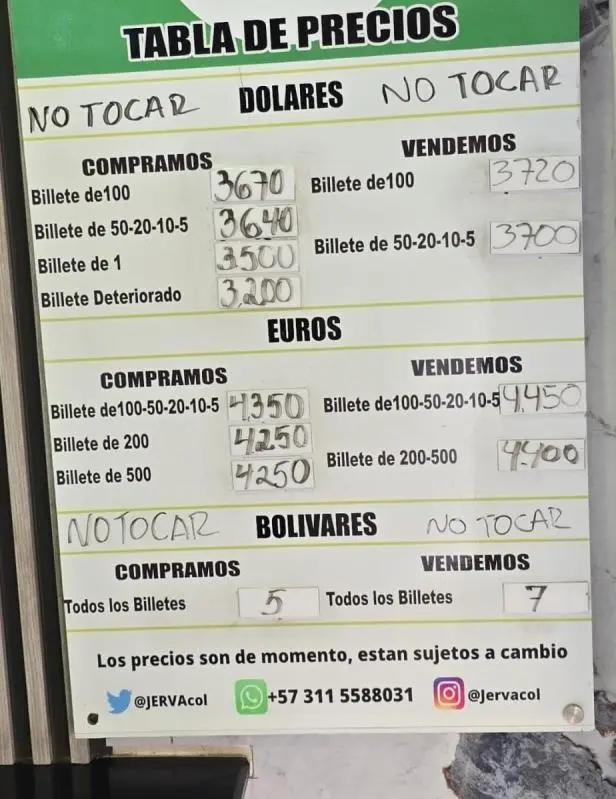 TABLA DE PRECIOS
NO TOCAR DOLARES NO TOCAR
COMPRAMOS VENDEMOS
Billete de100 3670 Billete de100 3720
Billete de 50-20-10-5 3640 Billete de 50-20-10-5 3700
Billete de 1 3500
Billete Deteriorado 3,200
EUROS
COMPRAMOS VENDEMOS
Billete de100-50-20-10-5 4,350 Billete de100-50-20-10-5 4,450
Billete de 200 4250 Billete de 200-500 4,400
Billete de 500 4250
NO TOCAR BOLIVARES NO TOCAR
COMPRAMOS VENDEMOS
Todos los Billetes 5 Todos los Billetes 7
Los precios son de momento, estan sujetos a cambio
@JERVAcol +57 311 5588031 @Jervacol